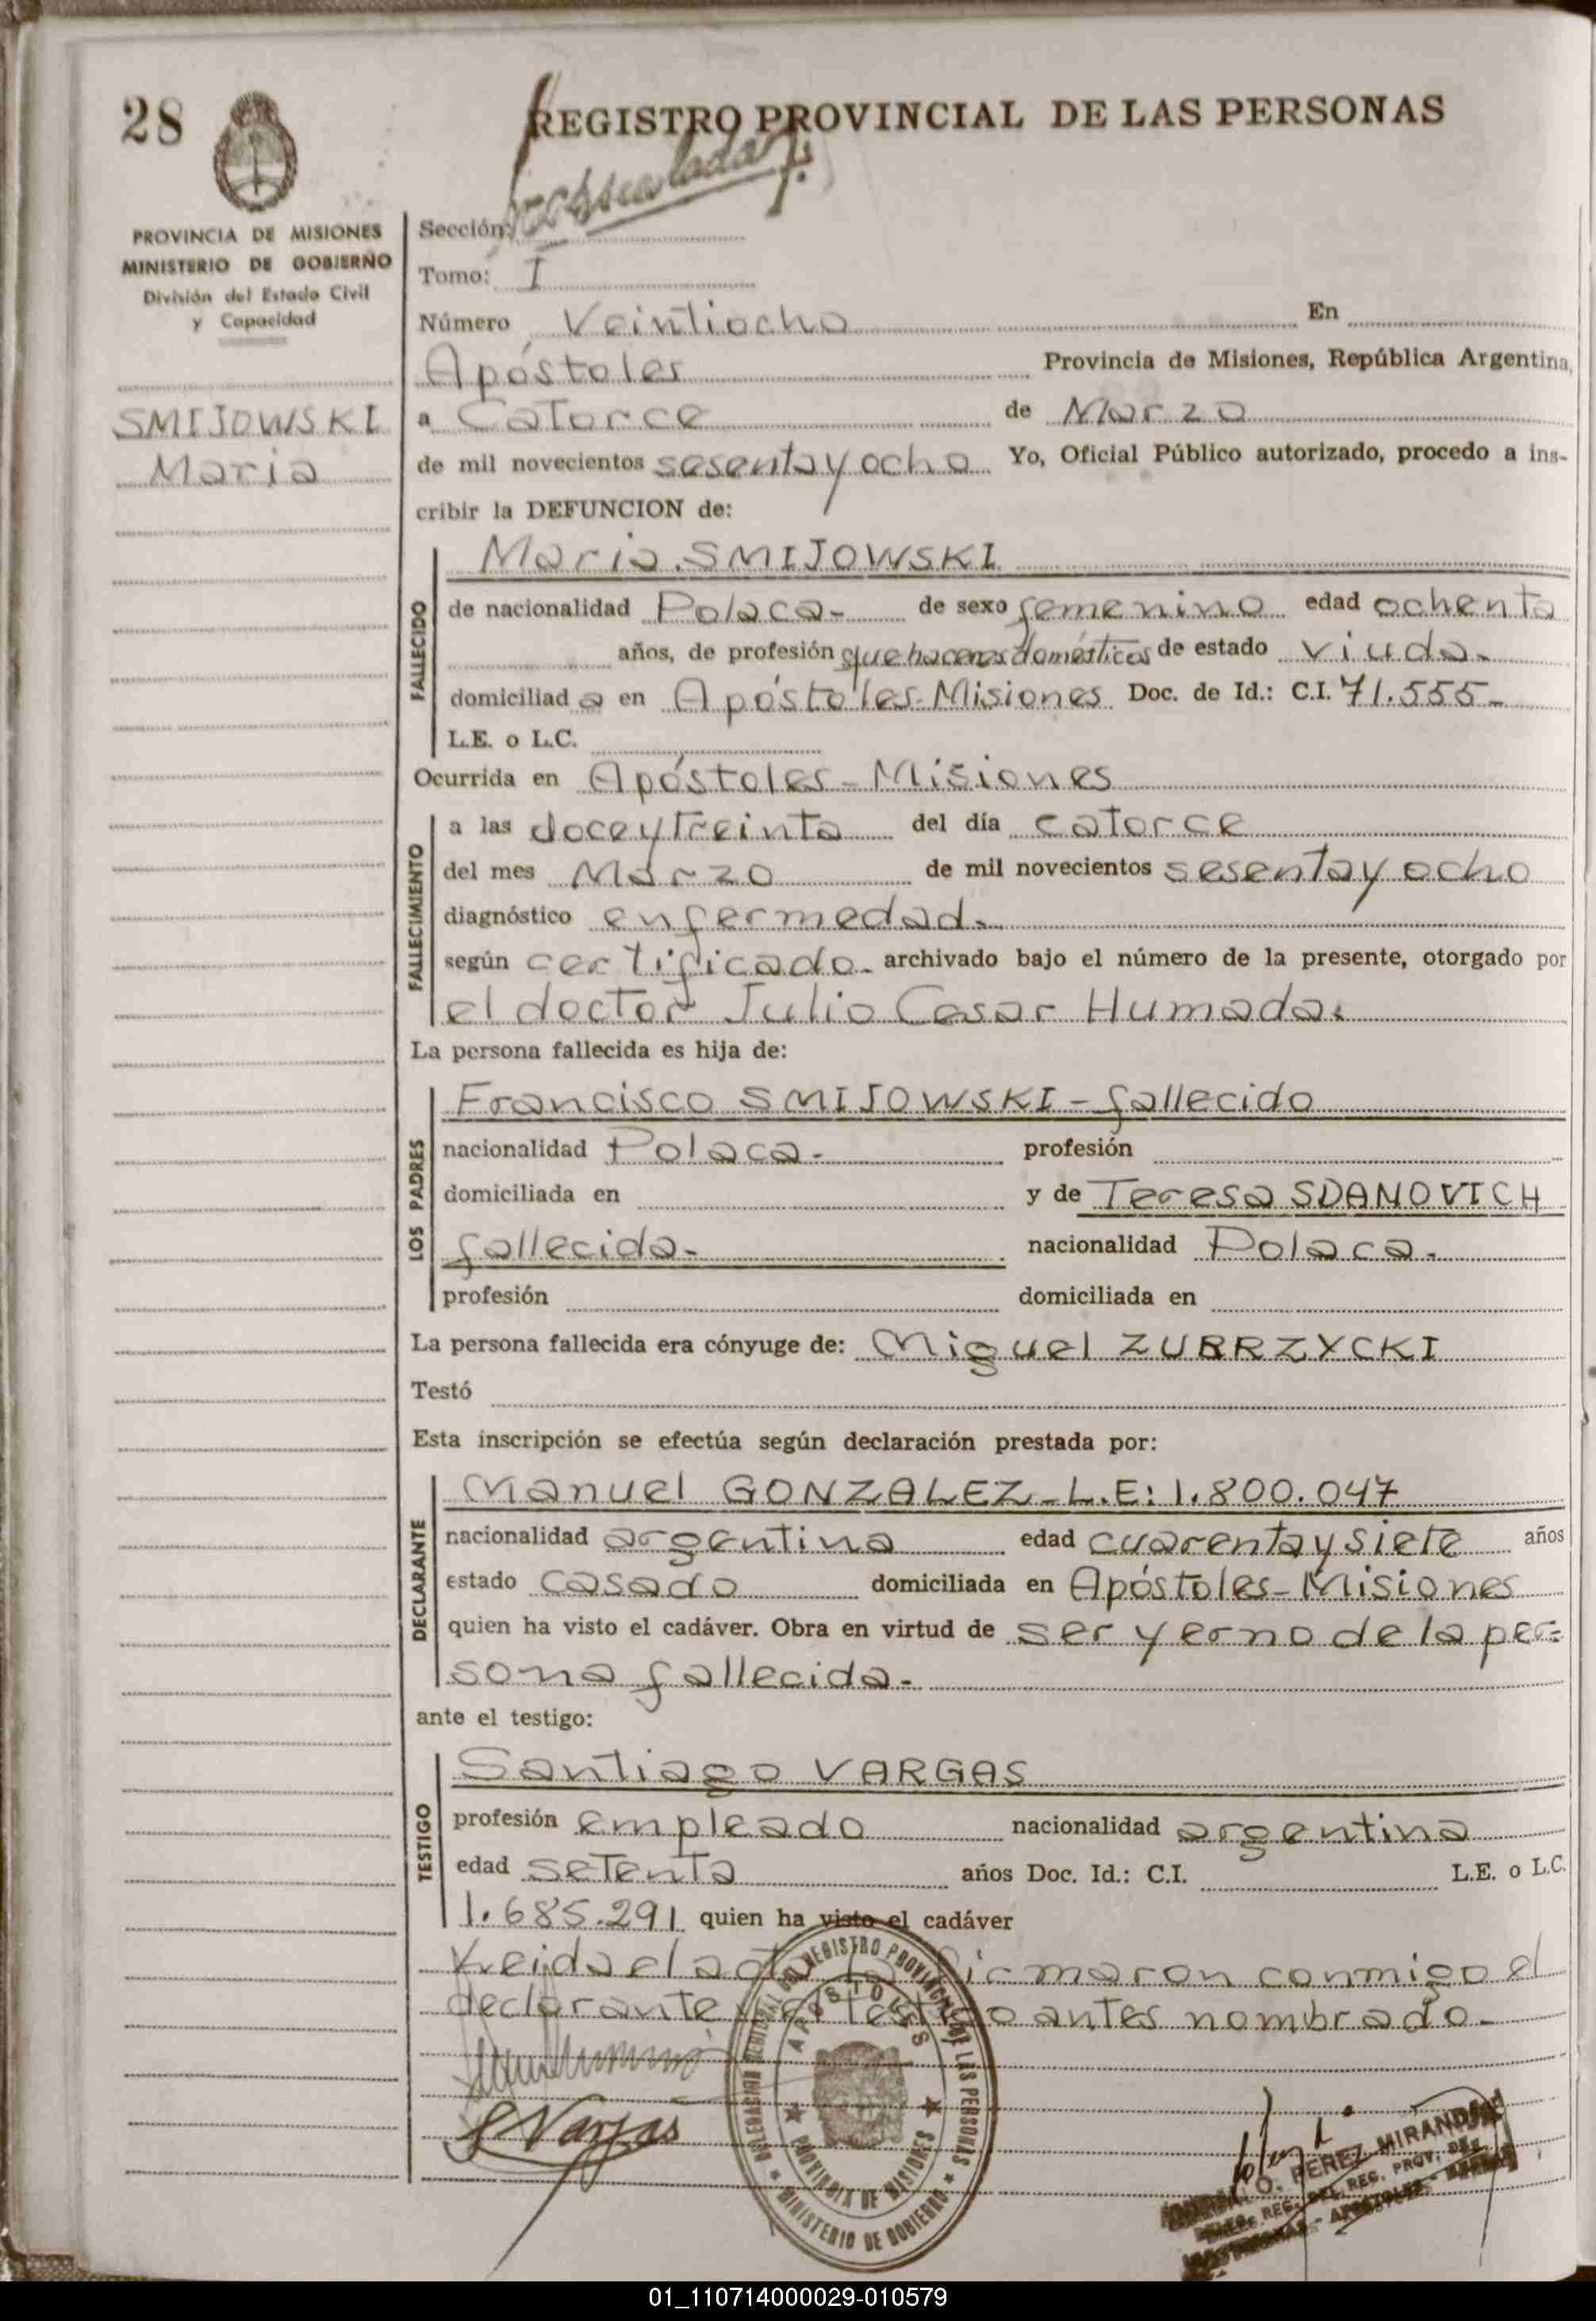 28
REGISTRO PROVINCIAL DE LAS PERSONAS
PROVINCIA DE MISIONES
MINISTERIO DE GOBIERNO
División del Estado Civil
y Capacidad
SMIJOWSKI
Maria
Sección:
Tomo: I
Número Veintiocho En
Apóstoles Provincia de Misiones, República Argentina,
a Catorce de Marzo
de mil novecientos sesenta y ocho Yo, Oficial Público autorizado, procedo a ins-
cribir la DEFUNCION de:
FALLECIDO
Maria SMIJOWSKI
de nacionalidad Polaca- de sexo femenino edad ochenta
años, de profesión quehaceres domésticos de estado viuda.
domiciliad a en Apóstoles-Misiones Doc. de Id.: C.I. 71.555-
L.E. o L.C.
Ocurrida en Apóstoles-Misiones
FALLECIMIENTO
a las doce y treinta del día catorce
del mes Marzo de mil novecientos sesenta y ocho
diagnóstico enfermedad.
según certificado- archivado bajo el número de la presente, otorgado por
el doctor Julio Cesar Humada.
La persona fallecida es hija de:
LOS PADRES
Francisco SMIJOWSKI-fallecido
nacionalidad Polaca- profesión
domiciliada en y de Teresa SDANOVICH
fallecida- nacionalidad Polaca.
profesión domiciliada en
La persona fallecida era cónyuge de: Miguel ZUBRZYCKI
Testó
Esta inscripción se efectúa según declaración prestada por:
DECLARANTE
Manuel GONZALEZ-L.E: 1.800.047
nacionalidad argentina edad cuarenta y siete años
estado casado domiciliada en Apóstoles-Misiones
quien ha visto el cadáver. Obra en virtud de ser yerno de la per=
sona fallecida-
ante el testigo:
TESTIGO
Santiago VARGAS
profesión empleado nacionalidad argentina
edad setenta años Doc. Id.: C.I. L.E. o L.C.
1.685.291 quien ha visto el cadáver
Leida el acta la firmaron conmigo el
declarante y el testigo antes nombrado-
S Vargas
DELEGACION REGIONAL DEL REGISTRO PROVINCIAL DE LAS PERSONAS
MINISTERIO DE GOBIERNO
APOSTOLES
PROVINCIA DE MISIONES
O. PEREZ MIRANDA
REG. DEL REG. PROV. DE
- APOSTOLES -
01_110714000029-010579